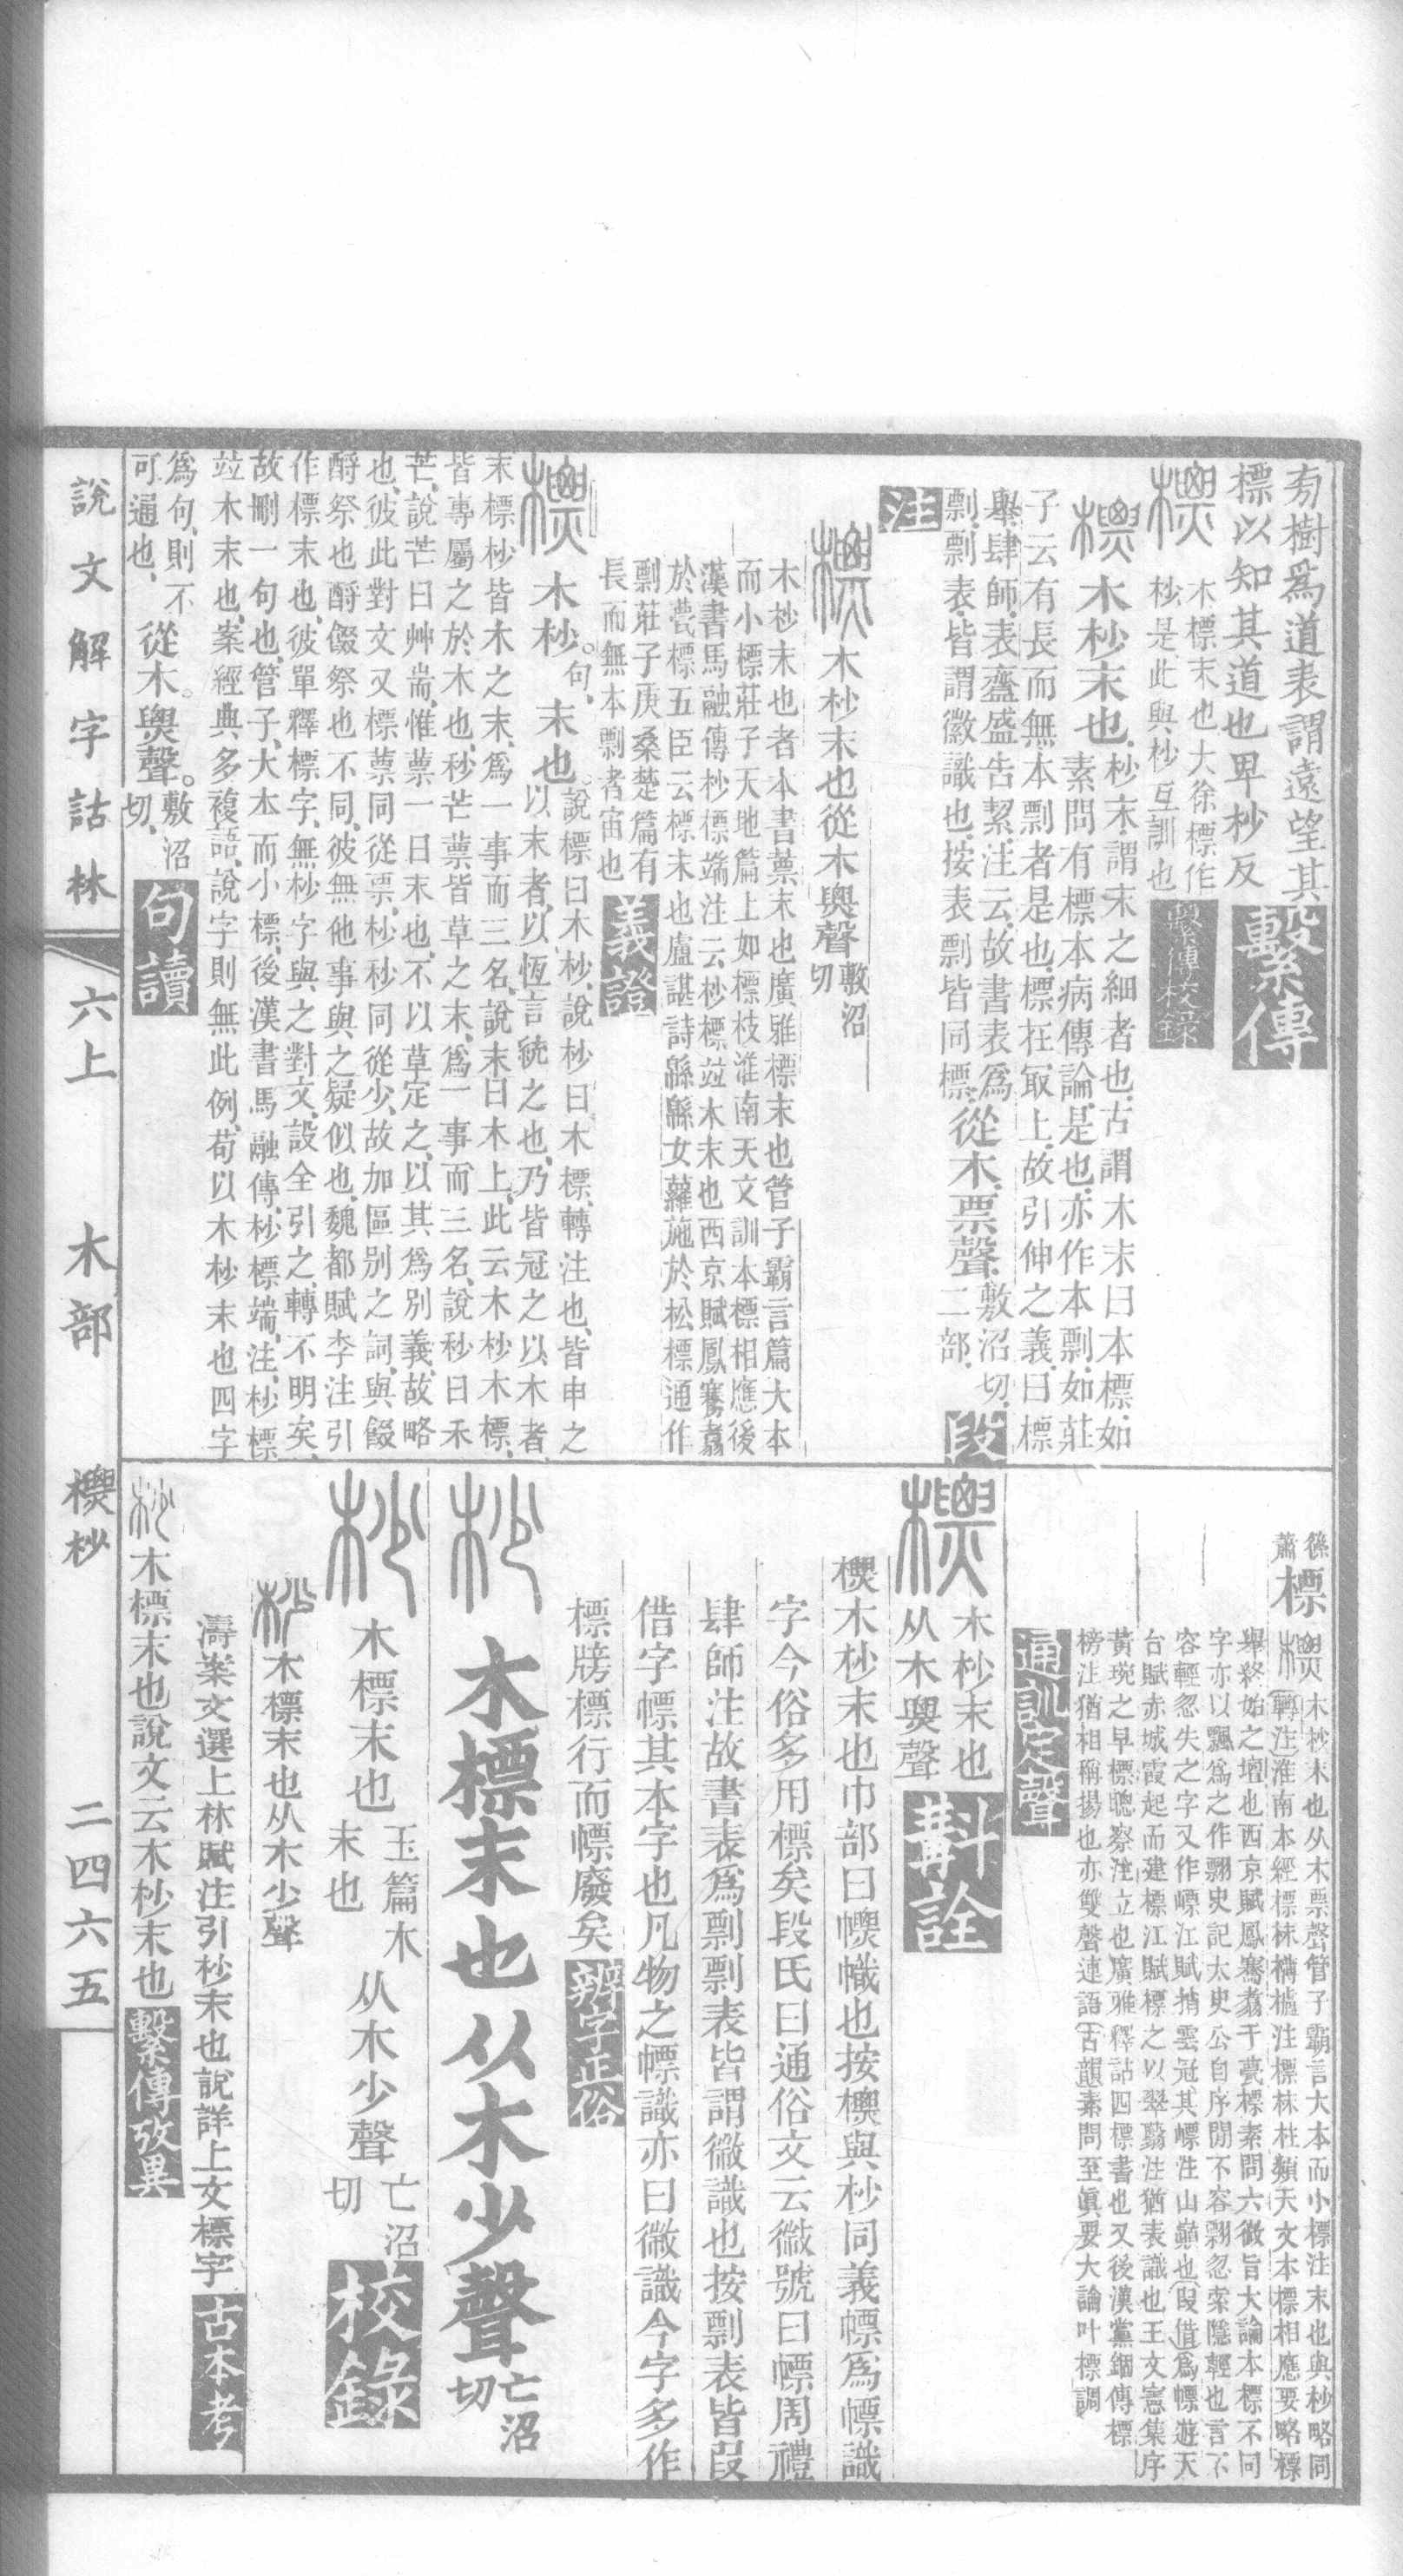 㫄樹爲道表謂遠望其
標以知其道也卑杪反
繫傳
木標末也大徐標作
杪是此與杪互訓也
繫傳校錄
木杪末也杪末謂末之細者也古謂木末曰本標如
素問有標本病傳論是也亦作本剽如莊
子云有長而無本剽者是也標在㝡上故引伸之義曰標
舉肆師表齍盛告絜注云故書表爲
剽剽表皆謂徽識也按表剽皆同標從木票聲敷沼切二部
段
注
木杪末也從木㶾聲敷沼
切
木杪末也者本書蔈末也廣雅標末也管子霸言篇大本
而小標莊子天地篇上如標枝淮南天文訓本標相應後
漢書馬融傳杪標端注云杪標竝木末也西京賦鳳騫翥
於甍標五臣云標末也盧諶詩緜緜女蘿施於松標通作
剽莊子庚桑楚篇有
長而無本剽者宙也
義證
木杪句末也說標曰木杪說杪曰木標轉注也皆申之
以末者以恆言統之也乃皆冠之以木者
末標杪皆木之末爲一事而三名說末曰木上此云木杪木標
皆專屬之於木也秒芒蔈皆草之末爲一事而三名說秒曰禾
芒說芒曰艸耑惟蔈一曰末也不以草定之以其爲別義故略
也彼此對文又標蔈同從票杪秒同從少故加區別之詞與餟
酹祭也酹餟祭也不同彼無他事與之疑似也魏都賦李注引
作標末也彼單釋標字無杪字與之對文設全引之轉不明矣
故刪一句也管子大本而小標後漢書馬融傳杪標端注杪標
竝木末也案經典多複語說字則無此例苟以木杪末也四字
爲句則不
可通也從木㶾聲敷沼
切
句讀
篠
蕭標
木杪末也从木票聲管子霸言大本而小標注末也與杪略同
轉注淮南本經標枺欂櫨注標枺柱類天文本標相應要略標
舉終始之壇也西京賦鳳騫翥于甍標素問六微旨大論本標不同
字亦以飄爲之作翲史記太史公自序閒不容翲忽索隱輕也言不
容輕忽失之字又作幖江賦㨄雲冠其幖注山巔也叚借爲幖遊天
台賦赤城霞起而建標江賦標之以翠翳注猶表識也王文憲集序
黃琬之早標聰察注立也廣雅釋詁四標書也又後漢黨錮傳標
榜注猶相稱揚也亦雙聲連語古韻素問至眞要大論叶標調
通訓定聲
木杪末也
从木㶾聲
斠詮
㯹木杪末也巾部曰幖幟也按㯹與杪同義幖爲幖識
字今俗多用標矣段氏曰通俗文云徽號曰幖周禮
肆師注故書表爲剽剽表皆謂徽識也按剽表皆叚
借字幖其本字也凡物之幖識亦曰徽識今字多作
標牓標行而幖廢矣
辨字正俗
木標末也从木少聲亡沼
切
木標末也玉篇木
末也从木少聲亡沼
切
校錄
木標末也从木少聲
濤案文選上林賦注引杪末也說詳上文標字
古本考
木標末也說文云木杪末也
繫傳攷異
說文解字詁林
六上
木部
㯹杪
二四六五